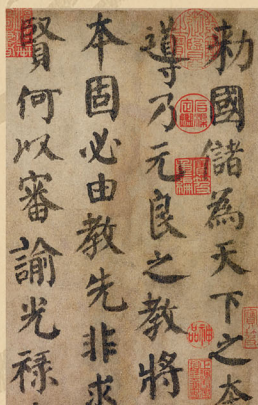 勑國儲為天下之本
導乃元良之教將
本固必由教先非求
賢何以審諭光祿